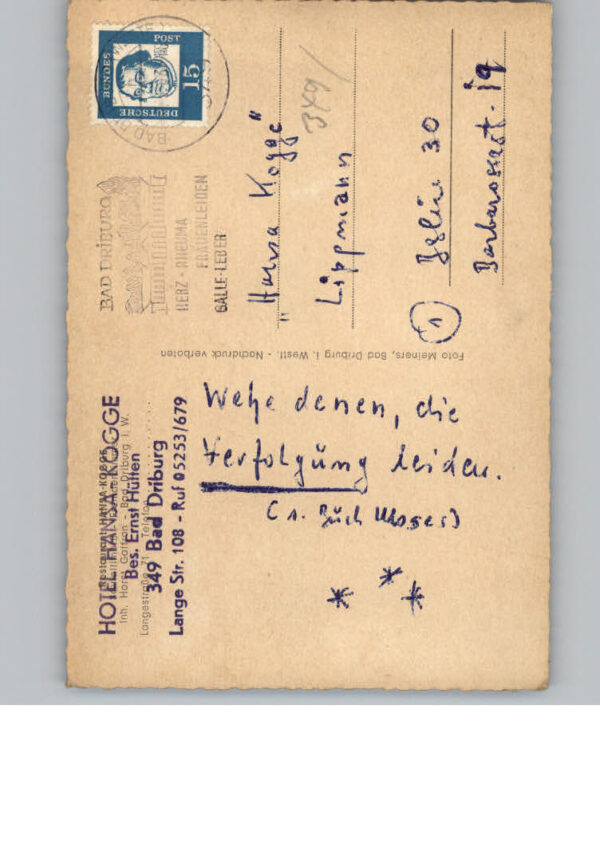 HOTEL HANSA-KOGGE
Bes. Ernst Hülten
349 Bad Driburg
Lange Str. 108 - Ruf 05253/679
Restaurant HANSA-KOGGE
Inh. Horst - Bad Driburg i. W.
Langestraße 71 Telefon
Wehe denen, die
Verfolgung leiden.
(1. Buch Moses)
* * *
Foto Meiners, Bad Driburg i. Westf. - Nachdruck verboten
BAD DRIBURG
HERZ - RHEUMA
FRAUENLEIDEN
GALLE - LEBER
DEUTSCHE
BUNDES
POST
15
349/
"Hansa Kogge"
Lippmann
① Berlin 30
Barbarossast. 19